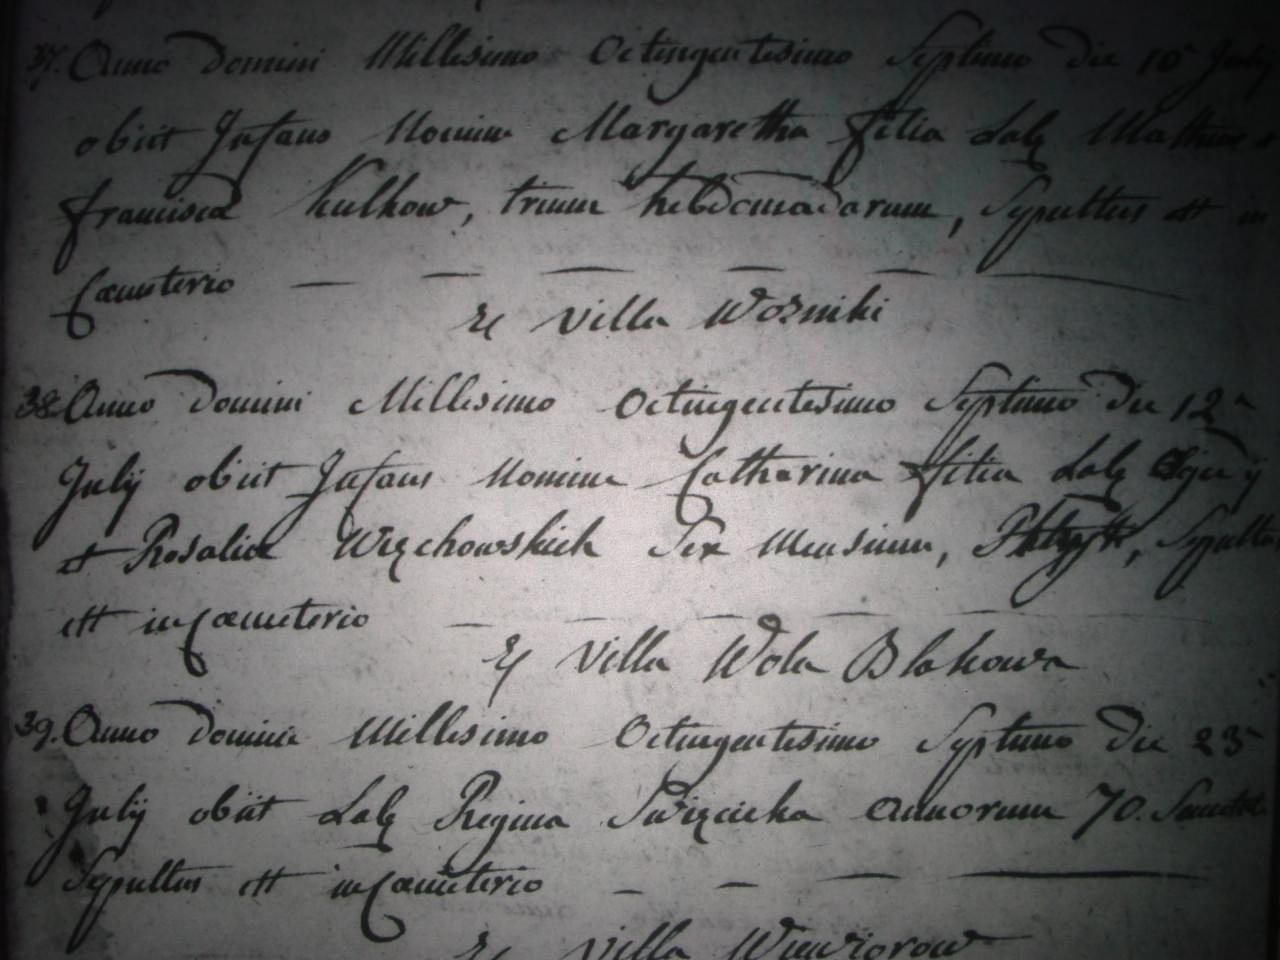 37. Anno Domini Millesimo Octingentesimo Septimo Die 10ª July
obiit Infans Nomine Margaretha filia Lab Mathiae et
Francisca Kulkow, trium hebdomadarum, Sepultus est in
Cœmeterio
Ex Villa Wozniki
38. Anno Domini Millesimo Octingentesimo Septimo Die 12ª
Julij obiit Infans Nomine Catharina filia Lab
et Rosaliæ Więchowskich Sex Mensium, Sepultus
est in Cœmeterio
Ex Villa Wola Blakowa
39. Anno Domini Millesimo Octingentesimo Septimo Die 23ª
Julij obiit Lab Regina Swięcicka Annorum 70.
Sepultus est in Cœmeterio
Ex Villa Wiewiorow